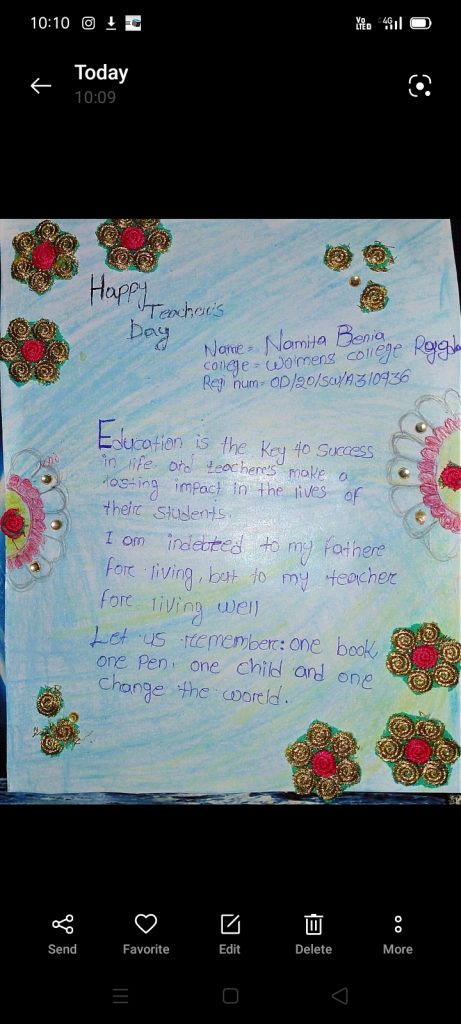 10:10
Vo LTED 4G
Today
10:09
Happy
Teacher's
Day
Name = Namita Benia
college = womens college
Regi num = OD/20/SW/A3/0936
Education is the key to success
in life and teachere's make a
lasting impact in the lives of
their students.
I am indebteed to my fathere
fore living, but to my teacher
fore living well
Let us rremember: one book,
one pen, one child and one
change the woreld.
Send
Favorite
Edit
Delete
More